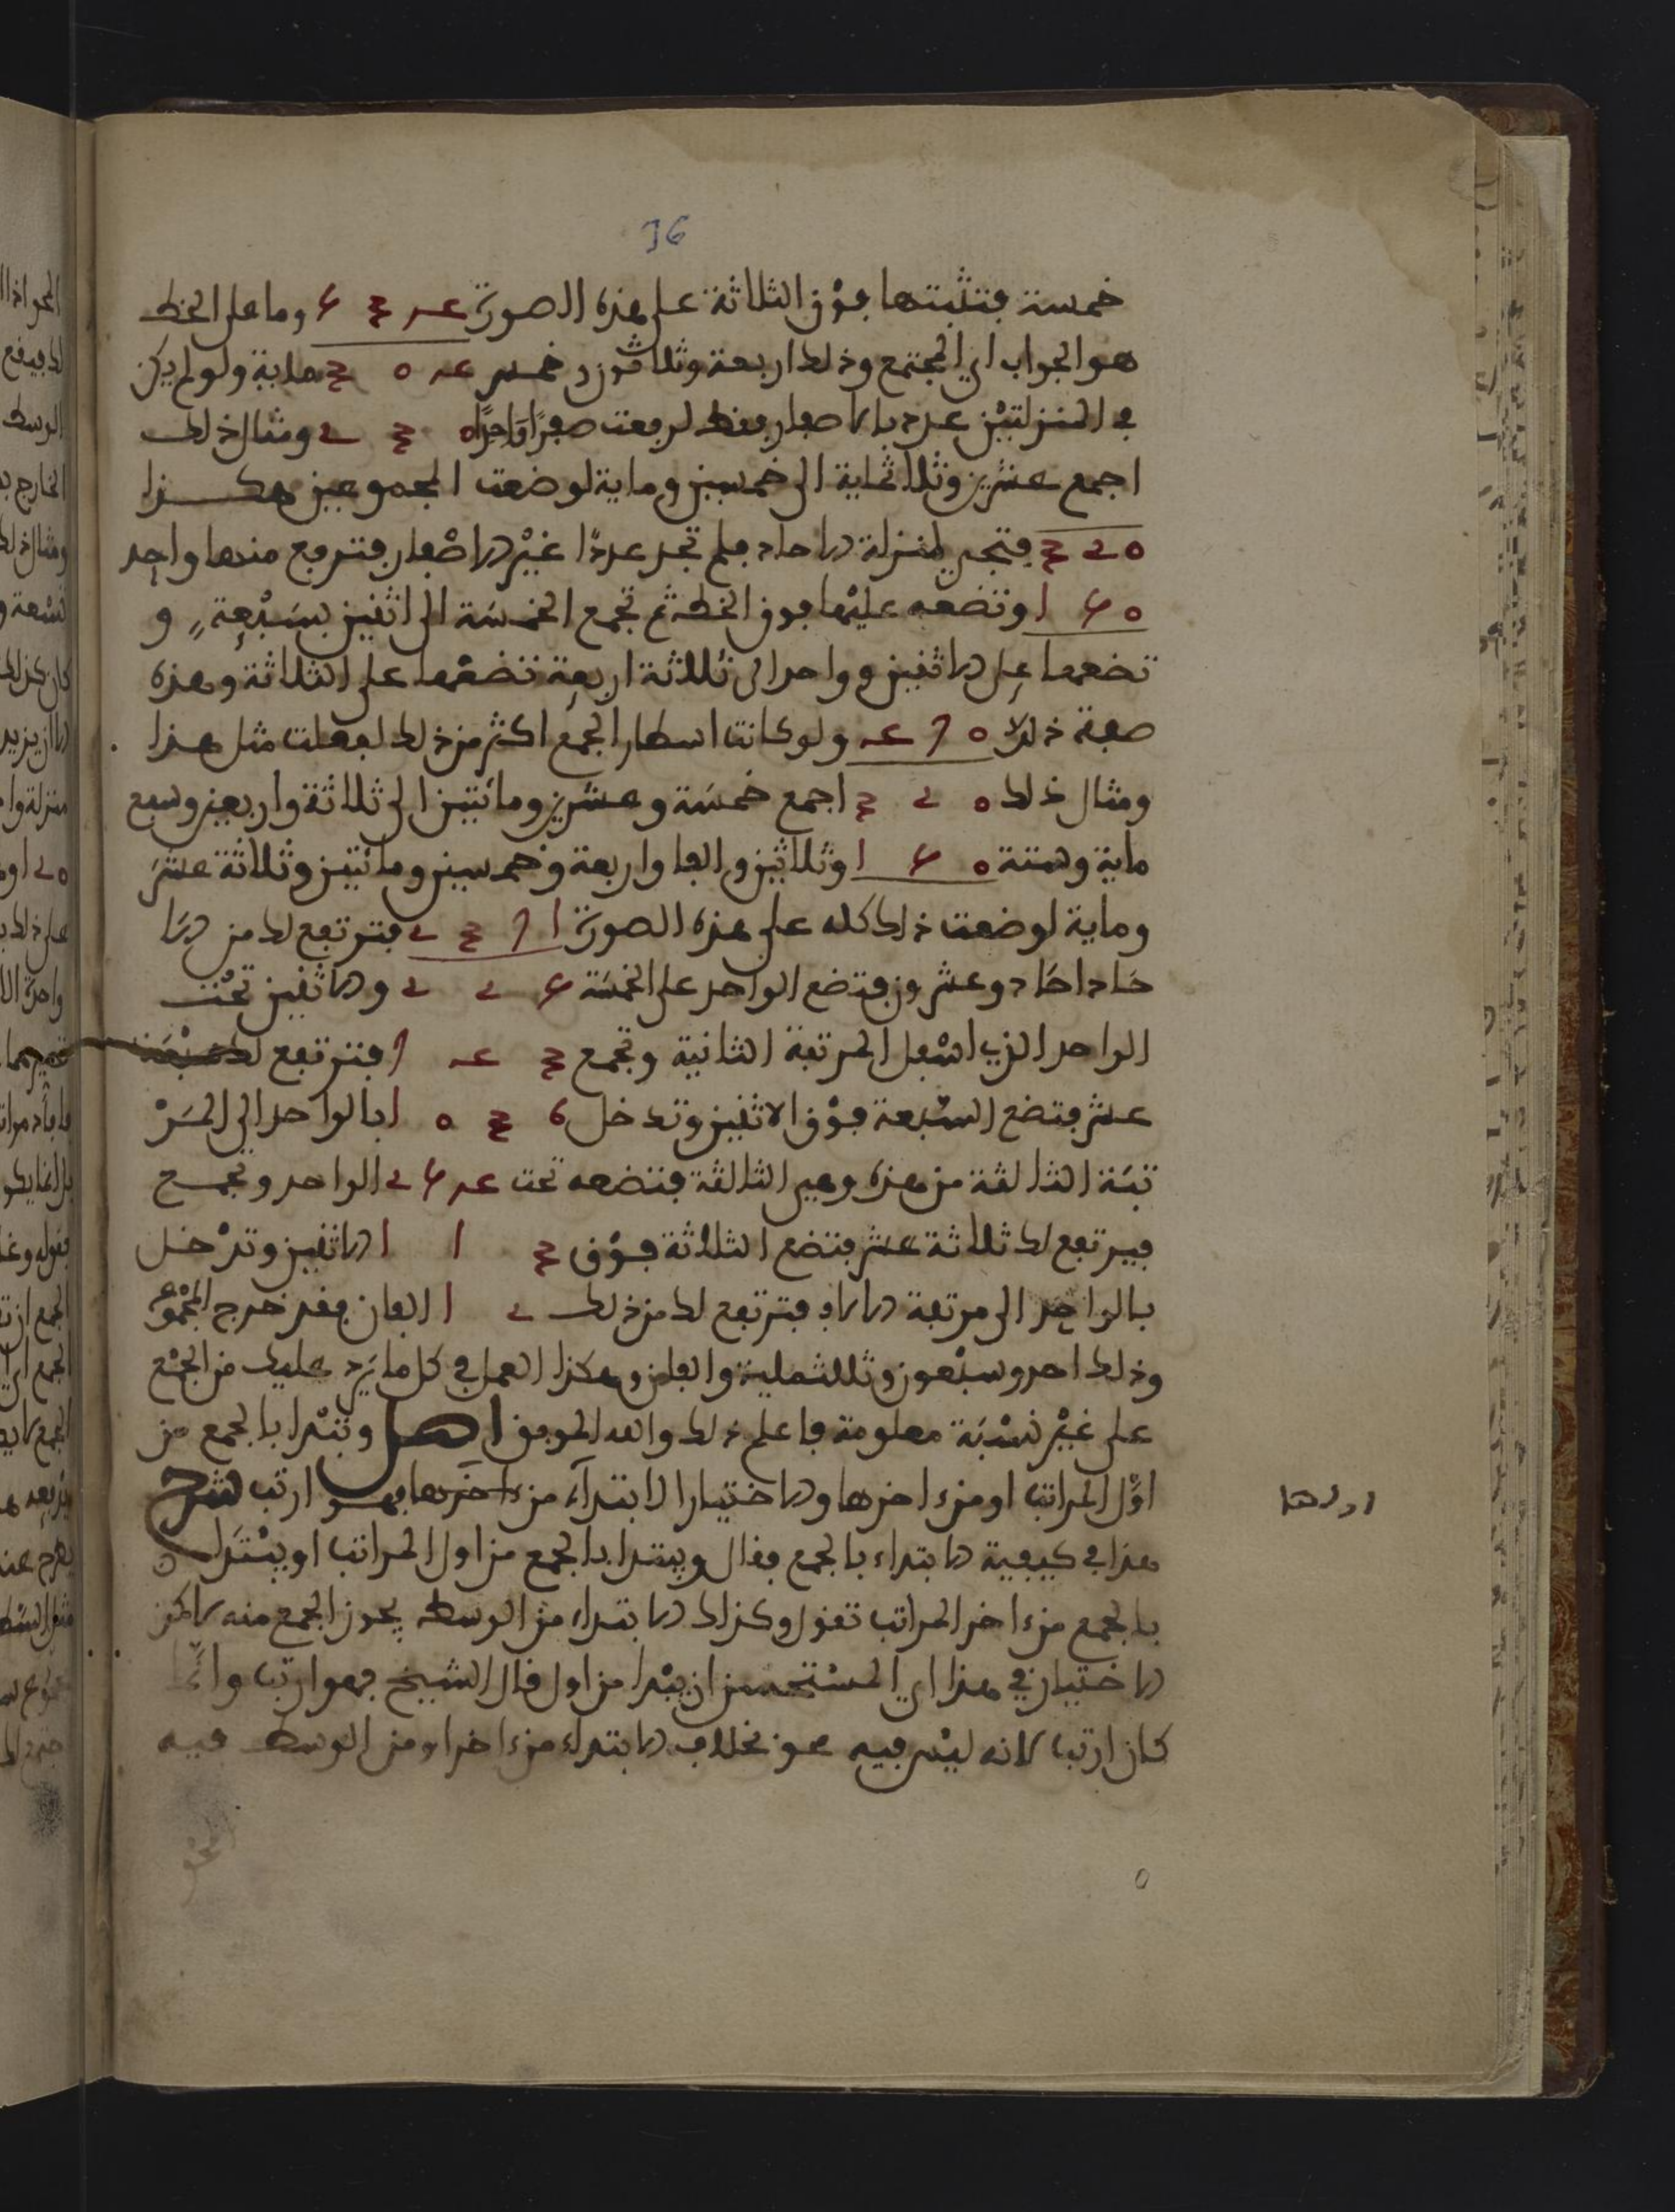 36
خمسة فتثبتها فوق الثلاثة على هذه الصورة وما على الخط
هو الجواب اي المجتمع وذلك اربعة وثلاثون وخمس ماية ولو لم يكن
في المنزلتين عدد بل اصفار فقط لرفعت صفرا واحدا ومثال ذلك
اجمع عشرين وثلاثماية الى خمسين وماية لوضعت المجموعين هكذا
فتجي لمنزلة الاحاد فلم تجد عددا غير الاصفار فترفع منها واحد
وتضعه عليها فوق الخط ثم تجمع الخمسة الى اثنين بسبعة و
تضعها على الاثنين وواحد الى ثلاثة اربعة تضعها على الثلاثة وهذه
صفة ذلك ولو كانت اسطار الجمع اكثر من ذلك لفعلت مثل هذا
ومثال ذلك اجمع خمسة وعشرين ومائتين الى ثلاثة واربعين وسبع
ماية وستة وثلاثين والفا واربعة وخمسين ومائتين وثلاثة عشر
وماية لوضعت ذلك كله على هذه الصورة فترتفع لك من الا
حاد احاد وعشرون فتضع الواحد على الخمسة والاثنين تحت
الواحد الذي اسفل المرتبة الثانية وتجمع فترتفع لك سبعة
عشر فتضع السبعة فوق الاثنين وتدخل بالواحد الى المر
تبة الثالثة من هذه وهي الثالثة فتضعه تحت الواحد وتجمع
فيرتفع لك ثلاثة عشر فتضع الثلاثة فوق الاثنين وتدخل
بالواحد الى مرتبة الالاف فترتفع لك من ذلك الفان فقد خرج المجموع
وذلك احد وسبعون وثلاثماية والفان وهكذا العمل في كل ما يرد عليك من الجمع
على غير نسبة معلومة فاعلم ذلك والله الموفق اصل وتبتدا بالجمع من
اول المراتب او من ءاخرها والاختيار الابتداء من ءاخرها فهو ارتب شرح
اولها
هذا في كيفية الابتداء بالجمع فقال ويبتدا بالجمع من اول المراتب او يبتدا
بالجمع من ءاخر المراتب تقول وكذلك الابتداء من الوسط يجوز الجمع منه لاكن
الاختيار في هذا اي المستحسن ان يبتدا من اول قال الشيخ فهو ارتب وانما
كان ارتب لانه ليس فيه محو بخلاف الابتداء من ءاخر او من الوسط فيه
المحو